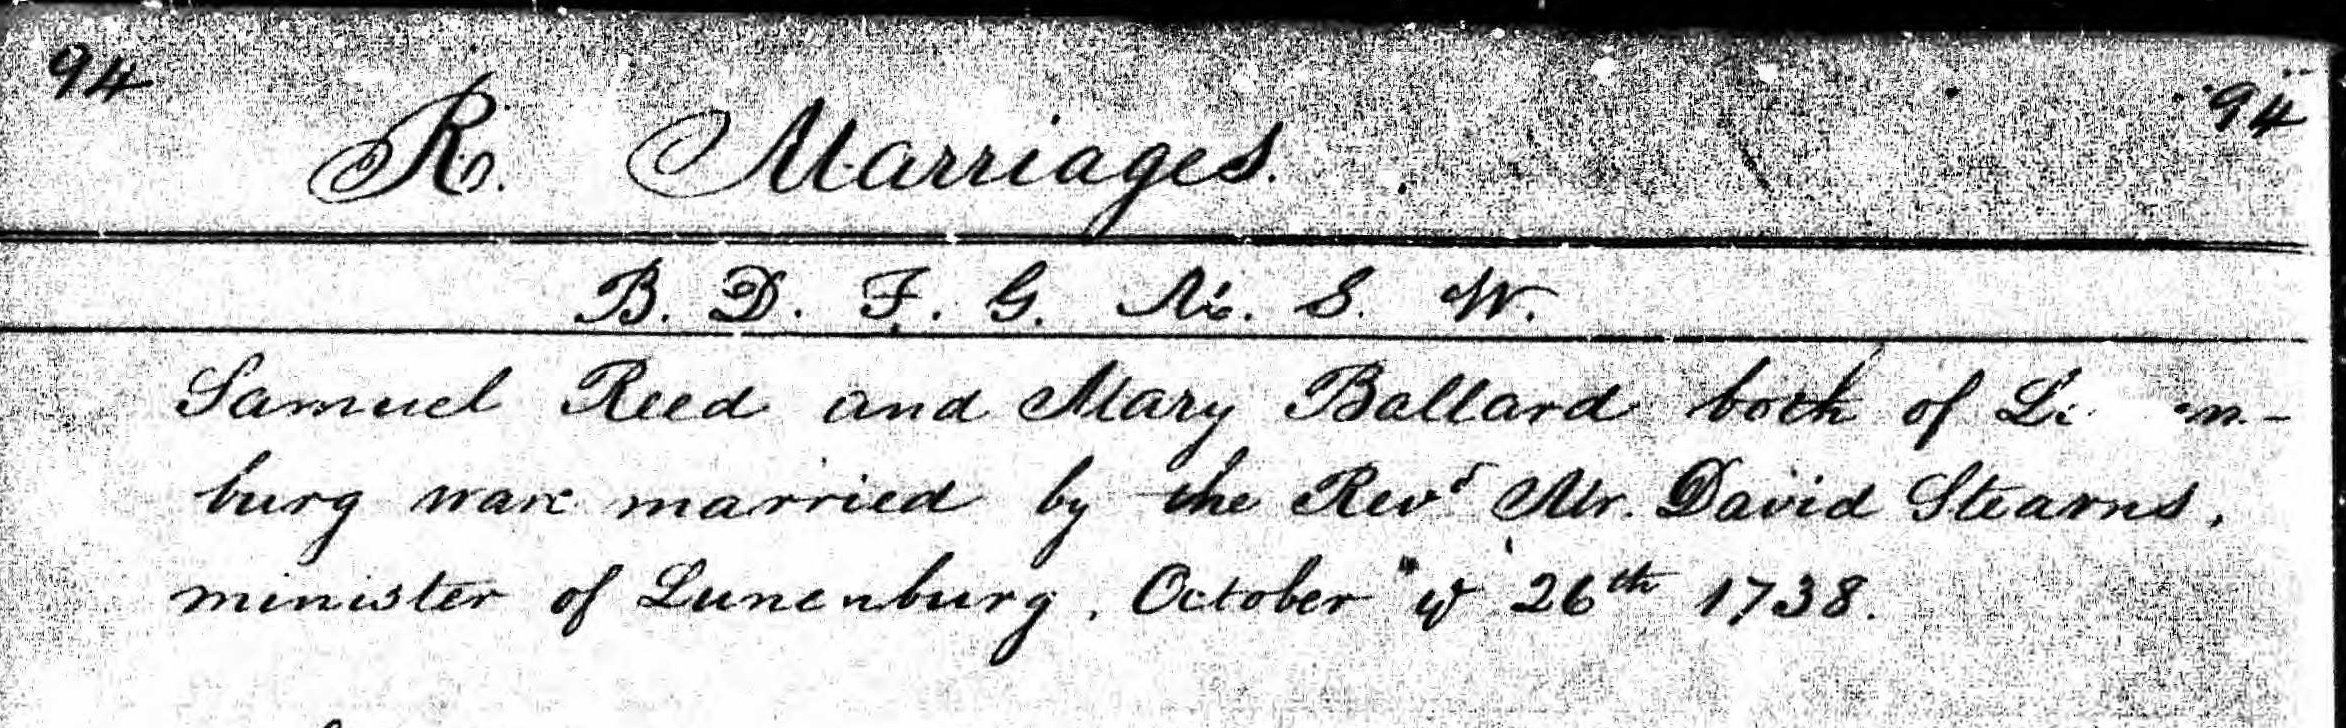 94 R. Marriages. 94
B. D. F. G. N. S. W.
Samuel Reed and Mary Ballard both of
burg ware married by the Revd Mr. David Stearns,
minister of Lunenburg, October ye 26th 1738.